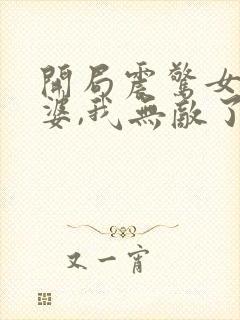 開局震驚女
婆,我無敵了
又一宵